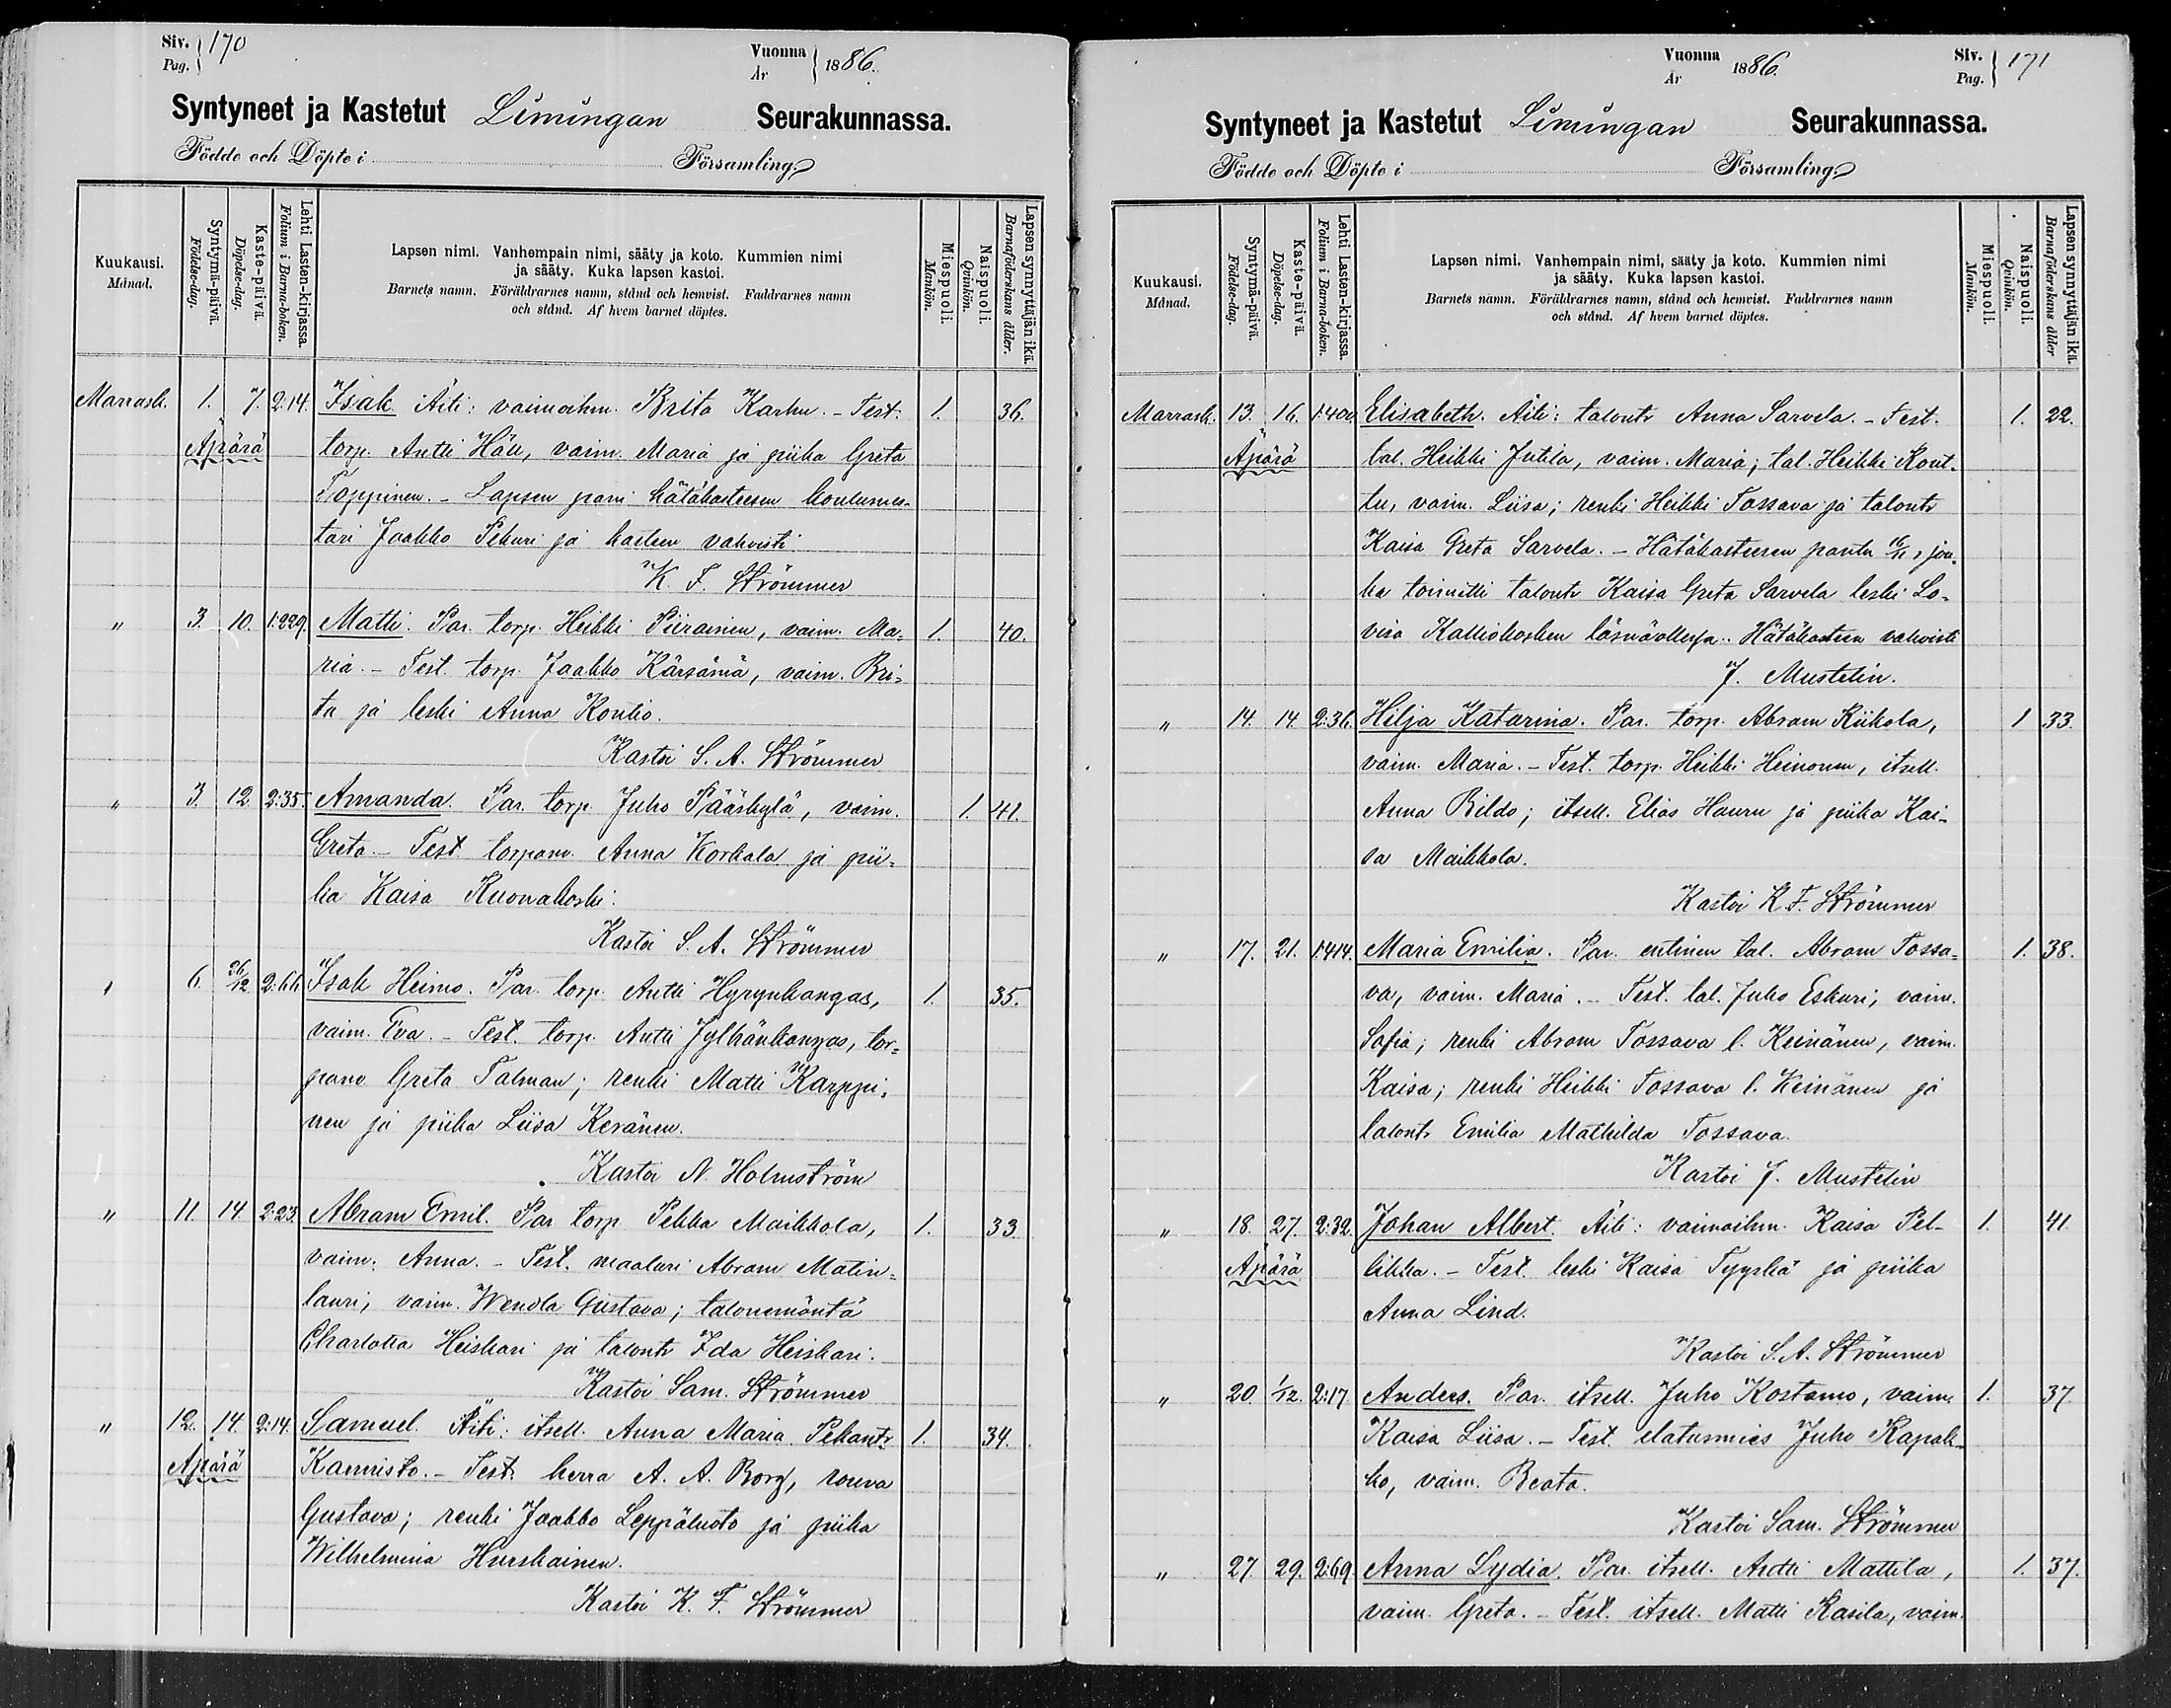 Siv. 170
Pag.
Vuonna 1886.
År
Syntyneet ja Kastetut Limingan Seurakunnassa.
Födde och Döpte i Församling.
Kuukausi.
Månad.
Syntymä-päivä.
Födelse-dag.
Kaste-päivä.
Döpelse-dag.
Lehti Lasten-kirjassa.
Folium i Barna-boken.
Lapsen nimi. Vanhempain nimi, sääty ja koto. Kummien nimi
ja sääty. Kuka lapsen kastoi.
Barnets namn. Föräldrarnes namn, stånd och hemvist. Faddrarnes namn
och stånd. Af hvem barnet döptes.
Miespuoli.
Mankön.
Naispuoli.
Qvinkön.
Lapsen synnyttäjän ikä.
Barnaföderskans ålder.
Marrask. 1. 7. 2:14. Isak Äiti: vaimoihm. Brita Karhu. - Test. 1. 36.
Äpärä torp. Antti Häli, vaim. Maria ja piika Greta
Toppinen. - Lapsen pani hätäkasteesen koulumes-
tari Jaakko Pekuri ja kasteen vahvisti
K. F. Strömmer
" 3. 10. 1:229. Matti. Par. torp. Heikki Piirainen, vaim. Ma- 1. 40.
ria. - Test. torp. Jaakko Kärsämä, vaim. Bri-
ta ja leski Anna Kontio.
Kastoi S. A. Strömmer
" 3. 12 2:35. Amanda. Par. torp. Juho Pääskylä, vaim. 1. 41.
Greta. - Test. torpanv. Anna Korkala ja pii-
ka Kaisa Kuonakoski.
Kastoi S. A. Strömmer
" 6. 26/12 2:66 Isak Heimo. Par. torp. Antti Hyrynkangas, 1. 35.
vaim. Eva. - Test. torp. Antti Jylhänkangas, tor-
panv. Greta Talman; renki Matti Karppi-
nen ja piika Liisa Keränen.
Kastoi N. Holmström
" 11. 14 2:23. Abram Emil. Par. torp. Pekka Maikkola, 1. 33
vaim. Anna. - Test. maalari Abram Matin-
lauri, vaim. Wendla Gustava; talonemäntä
Charlotta Heiskari ja talontr Ida Heiskari.
Kastoi Sam. Strömmer
" 12. 14 2:14. Samuel. Äiti: itsell. Anna Maria Pekantr. 1. 34.
Äpärä Kannisto. - Test. herra A. A. Borg, rouva
Gustava; renki Jaakko Leppäluoto ja piika
Wilhelmina Hurskainen.
Kastoi K. F. Strömmer
Vuonna 1886.
År
Siv. 171
Pag.
Syntyneet ja Kastetut Limingan Seurakunnassa.
Födde och Döpte i Församling.
Kuukausi.
Månad.
Syntymä-päivä.
Födelse-dag.
Kaste-päivä.
Döpelse-dag.
Lehti Lasten-kirjassa.
Folium i Barna-boken.
Lapsen nimi. Vanhempain nimi, sääty ja koto. Kummien nimi
ja sääty. Kuka lapsen kastoi.
Barnets namn. Föräldrarnes namn, stånd och hemvist. Faddrarnes namn
och stånd. Af hvem barnet döptes.
Miespuoli.
Mankön.
Naispuoli.
Qvinkön.
Lapsen synnyttäjän ikä.
Barnaföderskans ålder
Marrask. 13. 16. Elisabeth. Äiti: talontr Anna Sarvela. - Test. 1. 22.
Äpärä tal. Heikki Jutila, vaim. Maria; tal. Heikki Kont-
tu, vaim. Liisa; renki Heikki Tossava ja talontr
Kaisa Greta Sarvela. - Hätäkasteesen pantu 16/11, jon-
ka toimitti talontr Kaisa Greta Sarvela leski Lo-
visa Kalliokosken läsnäollessa. Hätäkasteen vahvisti
J. Mustelin.
" 14. 14. 2:36. Hilja Katarina. Par. torp. Abram Kiikola, 1 33.
vaim. Maria. - Test. torp. Heikki Heinonen, itsell.
Anna Bildo; itsell. Elias Hauru ja piika Kai-
sa Maikkola.
Kastoi K. F. Strömmer
" 17. 21. 1:414. Maria Emilia. Par. entinen tal. Abram Tossa- 1. 38.
va, vaim. Maria. - Test. tal. Juho Eskuri, vaim.
Sofia; renki Abram Tossava l. Keinänen, vaim.
Kaisa; renki Heikki Tossava l. Keinänen ja
talontr Emilia Mathilda Tossava.
Kastoi J. Mustelin
" 18. 27. 2:32. Johan Albert. Äiti: vaimoihm. Kaisa Pel- 1. 41.
Äpärä likka. - Test. leski Kaisa Tyyskä ja piika
Anna Lind.
Kastoi S. A. Strömmer
" 20. 1/12. 2:17. Anders. Par. itsell. Juho Kostamo, vaim. 1. 37.
Kaisa Liisa. - Test. elatusmies Juho Kapak-
ko, vaim. Beata.
Kastoi Sam. Strömmer
" 27. 29. 2:69. Anna Lydia. Par. itsell. Antti Mattila, 1. 37.
vaim. Greta. - Test. itsell. Matti Rasila, vaim.